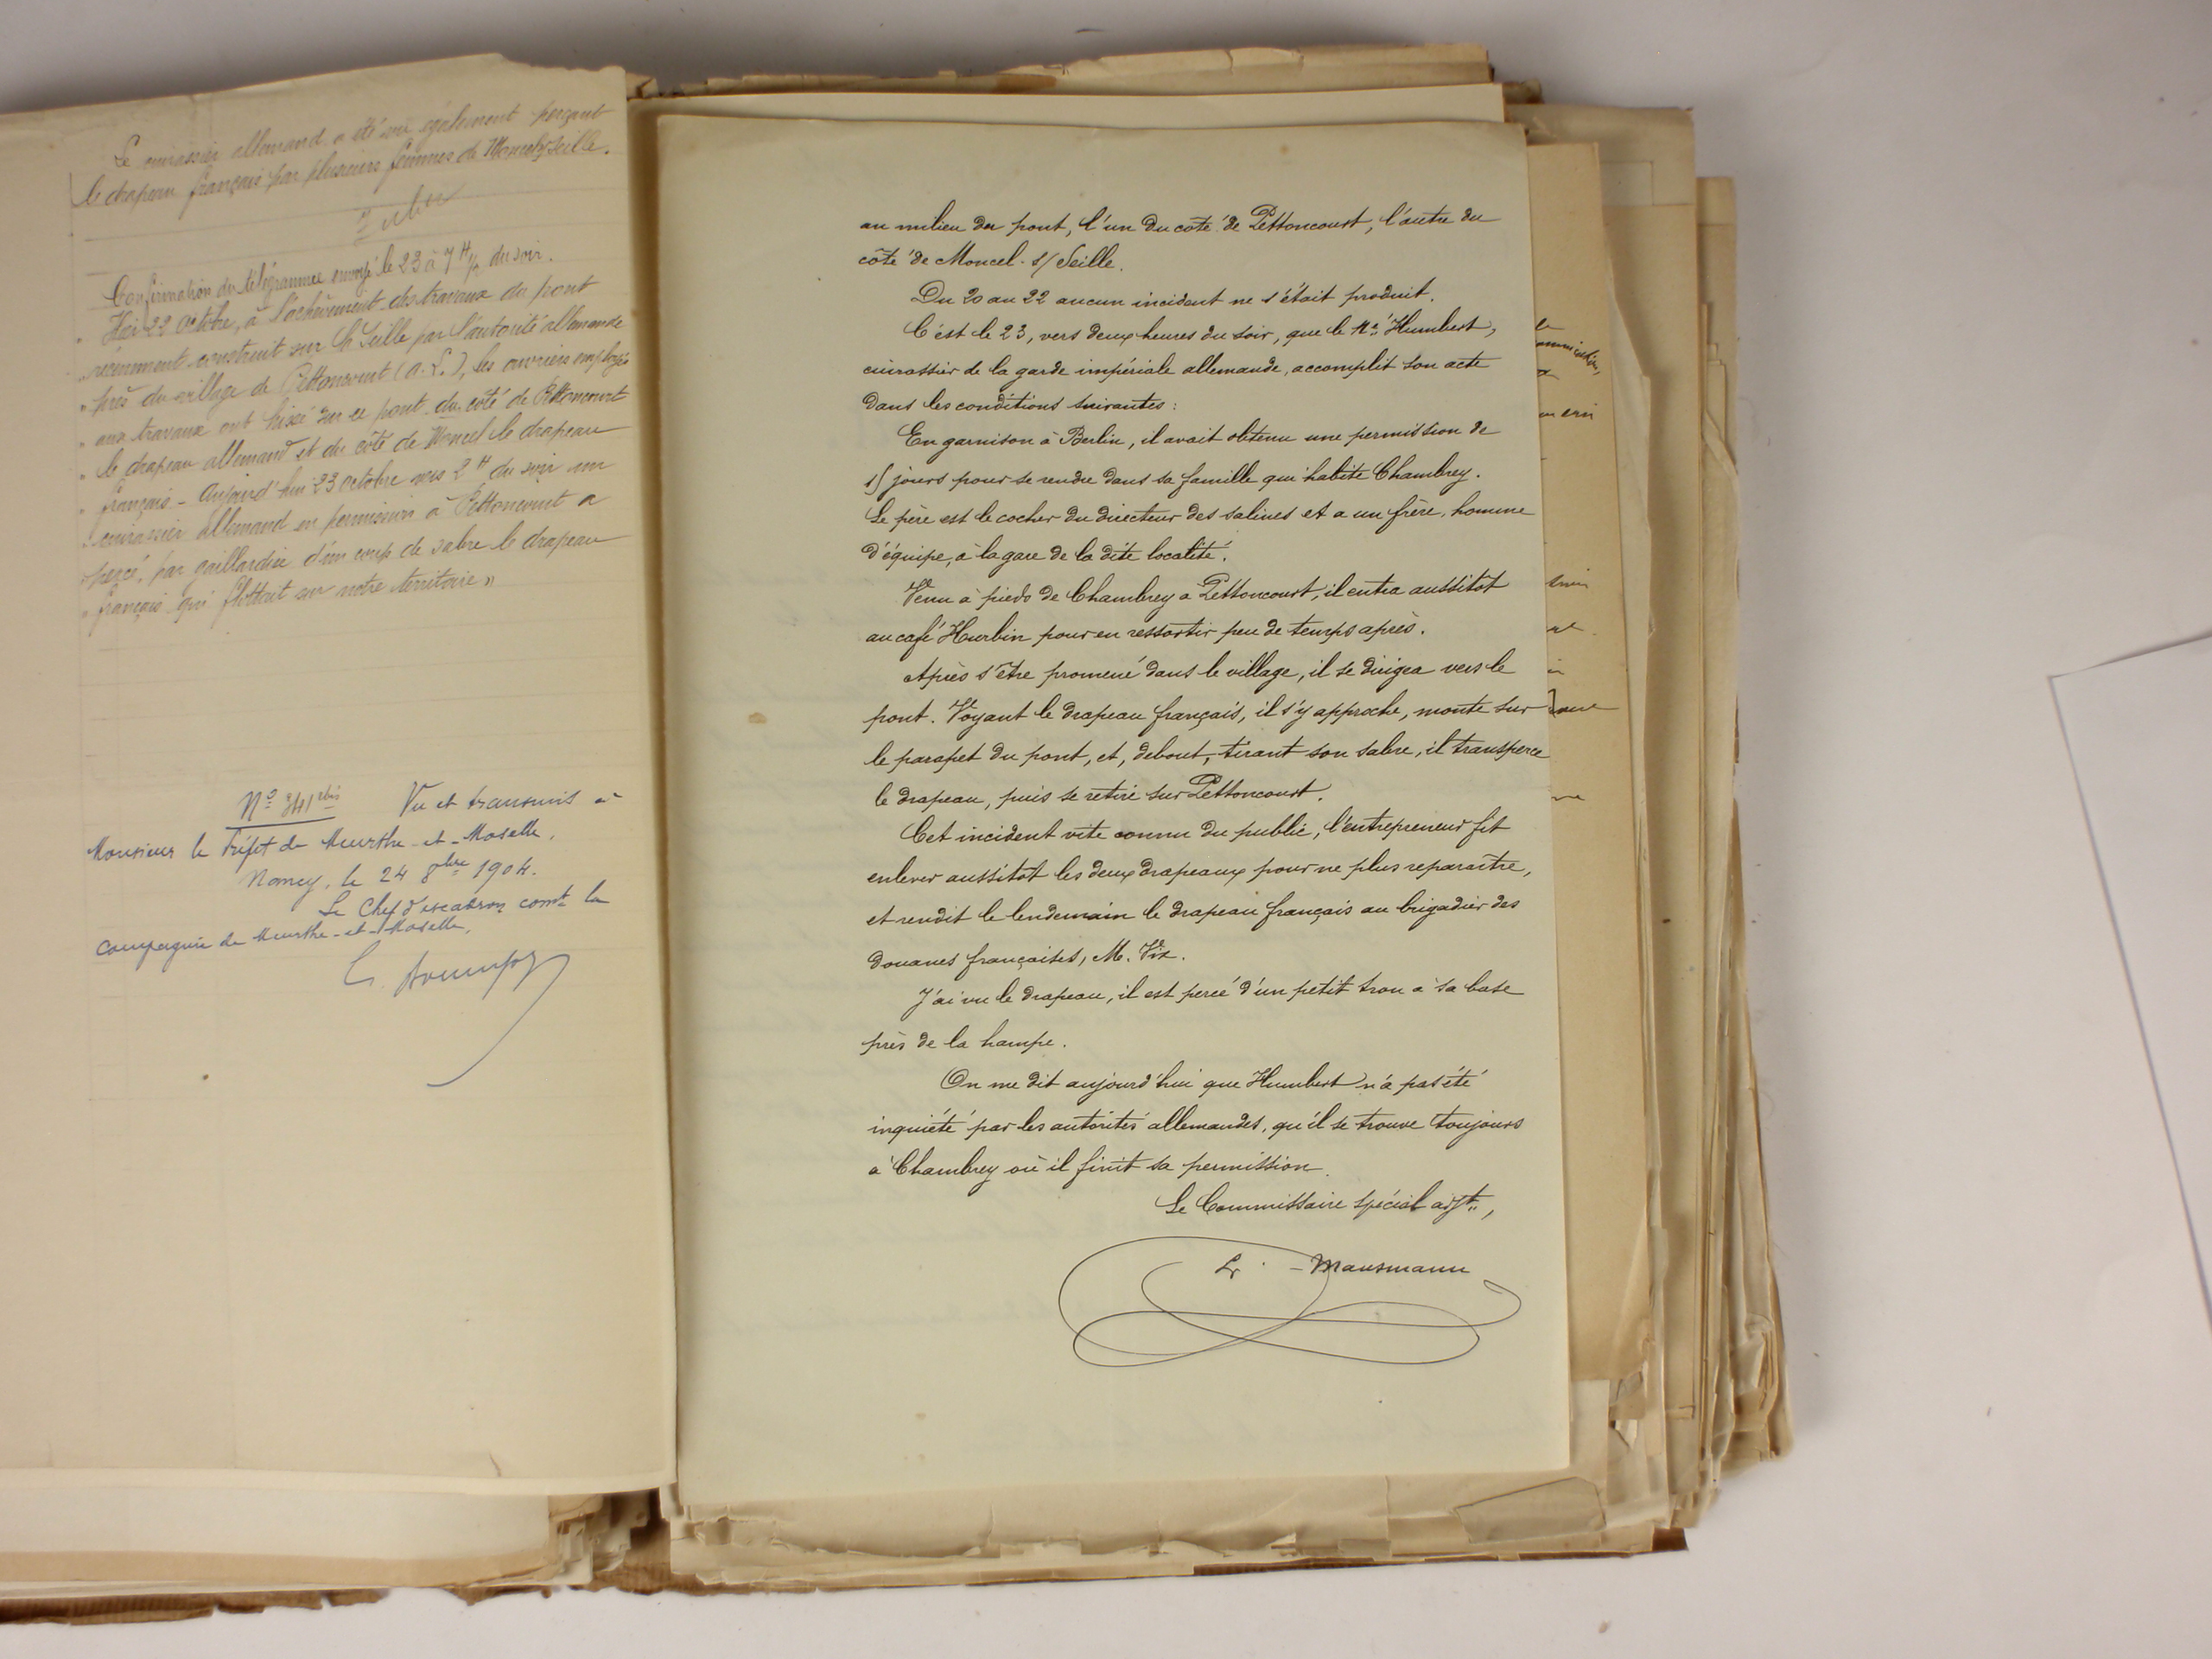 Le cuirassier allemand a été vu également perçant
le drapeau français par plusieurs femmes de Moncel s/Seille.
Confirmation du télégramme envoyé le 23 à 7 H 1/2 du soir.
" Hier 22 Octobre, à l'achèvement des travaux du pont
" récemment construit sur la Seille par l'autorité allemande
" près du village de Pettoncourt (A. L.), les ouvriers employés
" aux travaux ont hissé sur ce pont du côté de Pettoncourt
" le drapeau allemand et du côté de Moncel le drapeau
" français - Aujourd'hui 23 Octobre vers 2 H du soir un
" cuirassier allemand en permission à Pettoncourt a
" percé, par gaillardise d'un coup de sabre le drapeau
" français qui flottait sur notre territoire "
N° 341 bis Vu et transmis à
Monsieur le Préfet de Meurthe-et-Moselle.
Nancy, le 24 8bre 1904.
Le Chef d'escadron comt la
Compagnie de Meurthe-et-Moselle,
au milieu du pont, l'un du côté de Pettoncourt, l'autre du
côté de Moncel-s/Seille.
Du 20 au 22 aucun incident ne s'était produit.
C'est le 23, vers deux heures du soir, que le Né Humbert,
cuirassier de la garde impériale allemande, accomplit son acte
dans les conditions suivantes :
En garnison à Berlin, il avait obtenu une permission de
15 jours pour se rendre dans sa famille qui habite Chambrey.
Le père est le cocher du directeur des salines et a un frère, homme
d'équipe, à la gare de la dite localité.
Venu à pieds de Chambrey à Pettoncourt, il entra aussitôt
au café Hurbin pour en ressortir peu de temps après.
Après s'être promené dans le village, il se dirigea vers le
pont. Voyant le drapeau français, il s'y approche, monte sur
le parapet du pont, et, debout, tirant son sabre, il transperce
le drapeau, puis se retire sur Pettoncourt.
Cet incident vite connu du public, l'entrepreneur fit
enlever aussitôt les deux drapeaux pour ne plus reparaître,
et rendit le lendemain le drapeau français au brigadier des
douanes françaises, M. Vix.
J'ai vu le drapeau, il est percé d'un petit trou à sa base
près de la hampe.
On me dit aujourd'hui que Humbert n'a pas été
inquiété par les autorités allemandes, qu'il se trouve toujours
à Chambrey où il finit sa permission.
Le Commissaire spécial adjt,
Mausmann